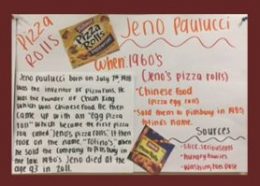 Pizza
Rolls
Jeno Paulucci
When: 1960's
(Jeno's pizza rolls)
-Chinese food
(pizza egg roll)
-Sold them to pillsbury in 1985
Pizza
Rolls
Jeno paulucci born on July 7th 1918
was the inventor of pizza rolls. He
was the founder of Chun King
which was chinese food. He then
came up with an "egg pizza
which became the first pizza
roll called "Jeno's pizza rolls". It then
took on the name "Totino's" when
he sold the company to pillsbury in
the late 1980's Jeno died at the
age 93 in 2011.
Sources
-slice.seriouseats
-hungryfoodies
-Washington Post